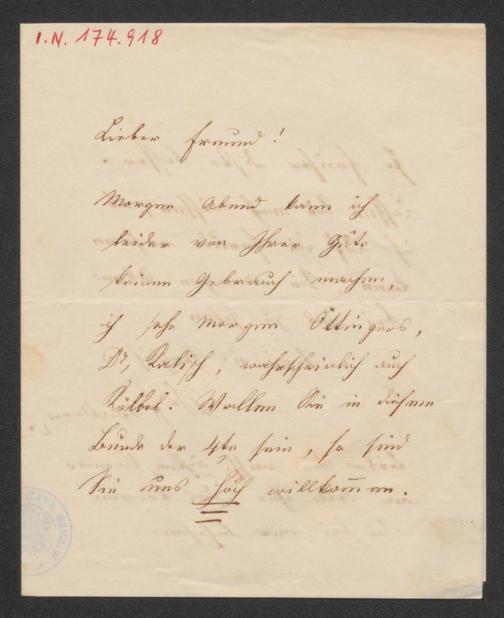 I.N. 174.918
Lieber Freund!
Morgen Abend kann ich
leider von Ihrer Güte
keinen Gebrauch machen,
ich sehe morgen Öttingers,
Dr, Kalisch, wahrscheinlich auch
Kölbel. Wollen Sie in diesem
Bunde der 4te sein, so sind
Sie uns hoch willkommen.